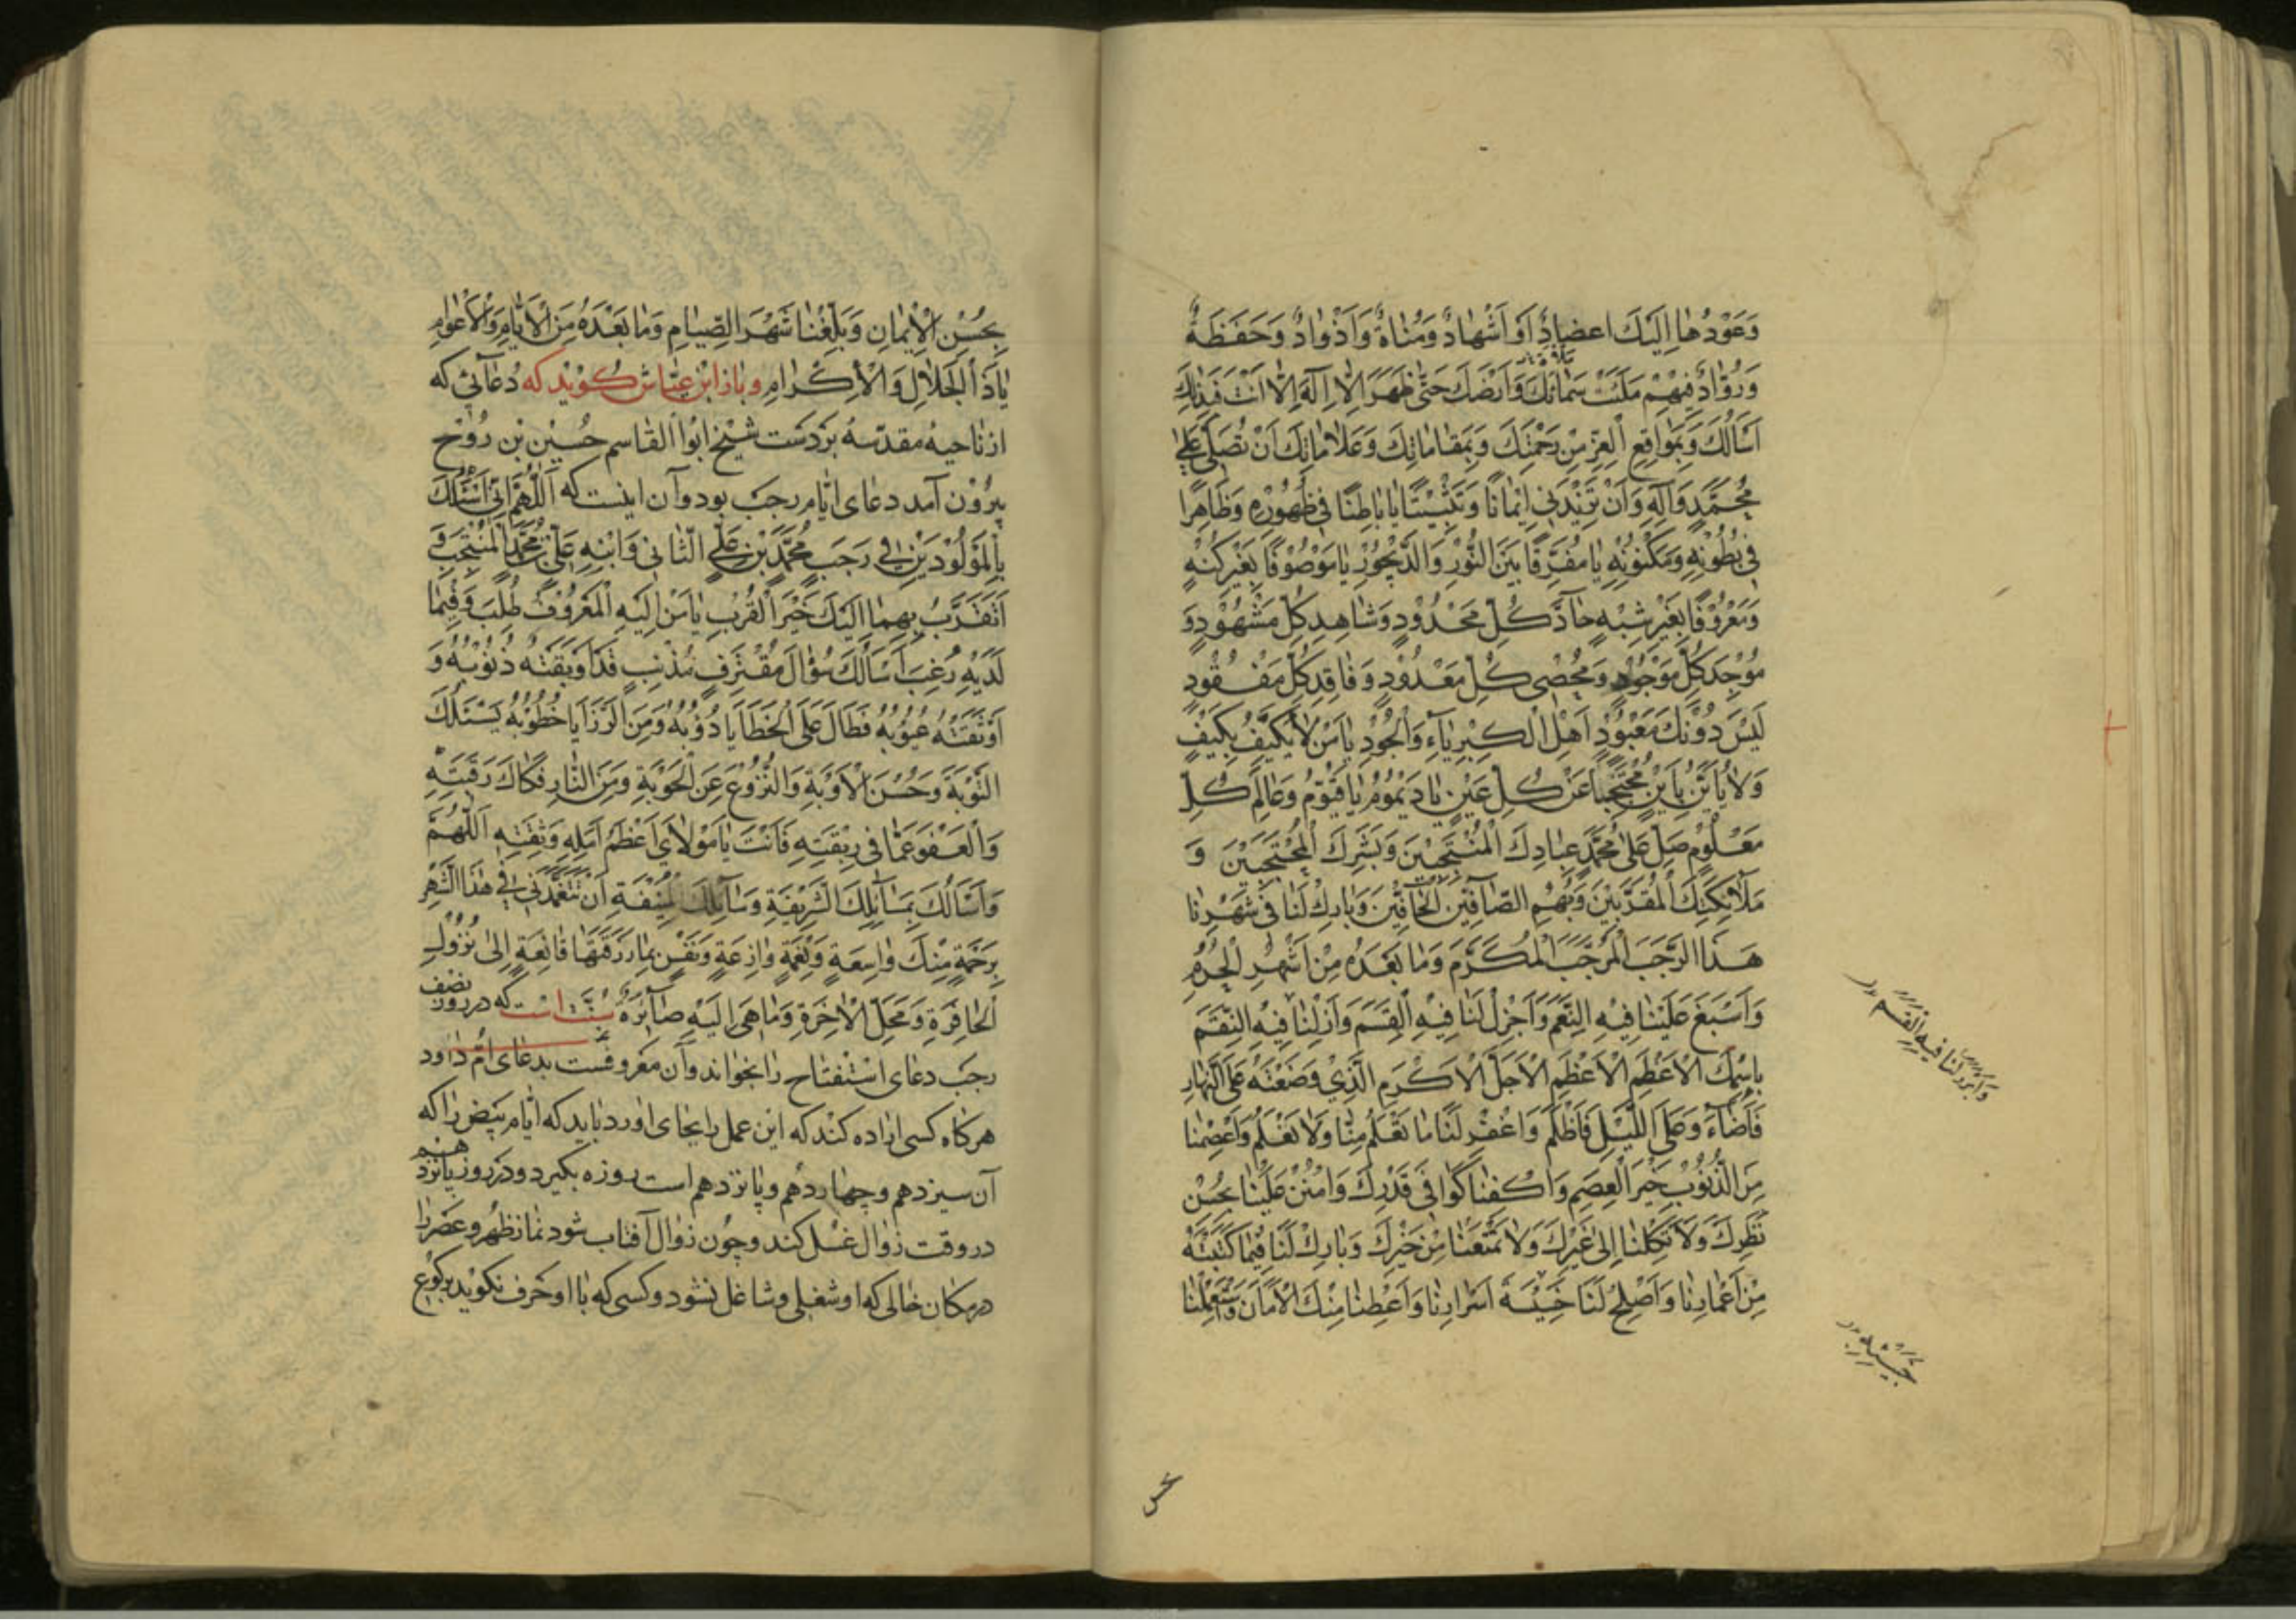 وَعَوْدُهٰا اِلَيْكَ اعضادٌ اَو اَشْهادٌ وَمُناةٌ وَاَذْوادٌ وَحَفَظَةٌ
وَرُوّادٌ فَبِهِمْ مَلَئْتَ سَمائَكَ وَاَرْضَكَ حَتّى ظَهَرَ اَلّا اِلٰهَ اِلّا اَنْتَ فَبِذٰلِكَ
اَسْاَلُكَ وَبِمَواقِعِ الْعِزِّ مِنْ رَحْمَتِكَ وَبِمَقاماتِكَ وَعَلاماتِكَ اَنْ تُصَلِّيَ عَلىٰ
مُحَمَّدٍ وَآلِهِ وَاَنْ تَزِيْدَنِي اِيْمانًا وَتَثْبِيْتًا يا باطِنًا فِي ظُهُوْرِهِ وَظاهِرًا
في بُطُوْنِهِ وَمَكْنُوْنِهِ يا مُفَرِّقًا بَيْنَ النُّوْرِ وَالدَّيْجُوْرِ يا مَوْصُوْفًا بِغَيْرِ كُنْهٍ
وَمَعْرُوْفًا بِغَيْرِ شِبْهٍ حآدَّ كُلِّ مَحْدُوْدٍ وَشاهِدِ كُلِّ مَشْهُوْدٍ وَ
مُوْجِدَ كُلِّ مَوْجُوْدٍ وَمُحْصِى كُلِّ مَعْدُوْدٍ وَفاقِدِ كُلِّ مَفْقُوْدٍ
لَيْسَ دُوْنَكَ مَعْبُوْدٌ اَهْلَ الْكِبْرِيآءِ وَالْجُوْدِ يا مَنْ لا يُكَيَّفُ بِكَيْفٍ
وَلا يُاَيَّنُ بِاَيْنٍ مُحْتَجِبًا عَنْ كُلِّ عَيْنٍ يا دَيْمُوْمُ يا قَيُّوْمُ وَعالِمَ كُلِّ
مَعْلُوْمٍ صَلِّ عَلىٰ مُحَمَّدٍ عِبادِكَ الْمُنْتَجَبِيْنَ وَبَشَرِكَ الْمُحْتَجَبِيْنَ وَ
مَلآئِكَتِكَ الْمُقَرَّبِيْنَ وَبُهْمِ الصّآفِّيْنَ الْحآفِّيْنَ وَبارِكْ لَنا في شَهْرِنا
هٰذَا الرَّجَبَ الْمُرَجَّبَ الْمُكَرَّمِ وَما بَعْدَهُ مِنْ اَشْهُرِ الْحُرُمِ
وَاَسْبِغْ عَلَيْنا فِيْهِ النِّعَمَ وَاَجْزِلْ لَنا فِيْهِ الْقِسَمَ وَاَزِلْنا فِيْهِ النِّقَمَ
بِاسْمِكَ الْاَعْظَمِ الْاَعْظَمِ الْاَجَلِّ الْاَكْرَمِ الَّذِيْ وَضَعْتَهُ عَلَى النَّهارِ
فَاَضآءَ وَعَلَى اللَّيْلِ فَاَظْلَمَ وَاغْفِرْ لَنا ما تَعْلَمُ مِنّا وَلا نَعْلَمُ وَاعْصِمْنا
مِنَ الذُّنُوْبِ خَيْرَ الْعِصَمِ وَاكْفِنا كَوافِيَ قَدَرِكَ وَامْنُنْ عَلَيْنا بِحُسْنِ
نَظَرِكَ وَلا تَكِلْنا اِلىٰ غَيْرِكَ وَلا تَمْنَعْنا مِنْ خَيْرِكَ وَبارِكْ لَنا فِيْما كَتَبْتَهُ
مِنْ اَعْمارِنا وَاَصْلِحْ لَنا خَبِيْئَةَ اَسْرارِنا وَاَعْطِنا مِنْكَ الْاَمانَ وَاسْتَعْمِلْنا
فيه القسم
بحسن
بِحُسْنِ الْاِيْمانِ وَبَلِّغْنا شَهْرَ الصِّيامِ وَما بَعْدَهُ مِنَ الْاَيّامِ وَالْاَعْوامِ
ياذَا الْجَلالِ وَالْاِكْرامِ وباز ابن عيّاش كويد كه دُعائى كه
از ناحيۀ مقدّسه بر دست شيخ ابوا القاسم حُسَيْن بْن رُوْح
بيرُوْن آمد دعاى ايّام رجب بود و آن اينست كه اَللّٰهُمَّ اِنّي اَسْئَلُكَ
بِالْمَوْلُوْدَيْنِ فِي رَجَبٍ مُحَمَّدِ بْنِ عَلِيٍّ الثّاني وَابْنِهِ عَلِيِّ بْنِ مُحَمَّدٍ الْمُنْتَجَبِ وَ
اَتَقَرَّبُ بِهِما اِلَيْكَ خَيْرَ الْقُرَبِ يا مَنْ اِلَيْهِ الْمَعْرُوْفُ طُلِبَ وَفِيْما
لَدَيْهِ رُغِبَ اَسْاَلُكَ سُؤالَ مُقْتَرِفٍ مُذْنِبٍ قَدْ اَوْبَقَتْهُ ذُنُوْبُهُ وَ
اَوْثَقَتْهُ عُيُوْبُهُ فَطالَ عَلَى الْخَطايا دُؤُبُهُ وَمِنَ الرَّزايا خُطُوْبُهُ يَسْئَلُكَ
التَّوْبَةَ وَحُسْنَ الْاَوْبَةِ وَالنُّزُوْعَ عَنِ الْحَوْبَةِ وَمِنَ النّارِ فَكاكَ رَقَبَتِهِ
وَالْعَفْوَ عَمّا في رِبْقَتِهِ فَاَنْتَ يا مَوْلايَ اَعْظَمُ اَمَلِهِ وَثِقَتِهِ اَللّٰهُمَّ
وَاَسْاَلُكَ بِمَسآئِلِكَ الشَّرِيْفَةِ وَسآئِلِكَ الْمُنِيْفَةِ اَنْ تَتَغَمَّدَنِي فِي هٰذَا الشَّهْرِ
بِرَحْمَةٍ مِنْكَ واسِعَةٍ وَنِعْمَةٍ وازِعَةٍ وَنَفْسٍ بِما رَزَقْتَها قانِعَةٍ اِلىٰ نُزُوْلِ
الْحافِرَةِ وَمَحَلِّ الْآخِرَةِ وَما هِيَ اِلَيْهِ صآئِرَةٌ سُنَّت است كه در روز نصف
رجب دعاى استفتاح را بخواند و آن معروفست بدعاى امّ داود
هركاه كسى اراده كند كه اين عمل را بجاى اورد بايد كه ايّام بيض را كه
آن سيزدهم و چهاردهم و پانزدهم است روزه بگيرد و در روز پانزدهم
در وقت زوال غسل كند و چون زوال آفتاب شود نماز ظهر و عصر را
در مكان خالى كه او شغلى و شاغل نشود و كسى كه با او حرف نكويد بركوع